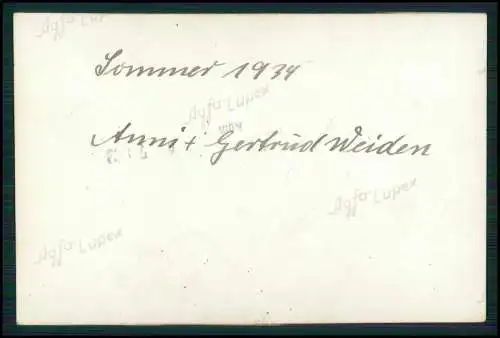 Agfa Lupex
Sommer 1934
Agfa Lupex
Anni + Gertrud Weiden
Agfa Lupex
Agfa Lupex